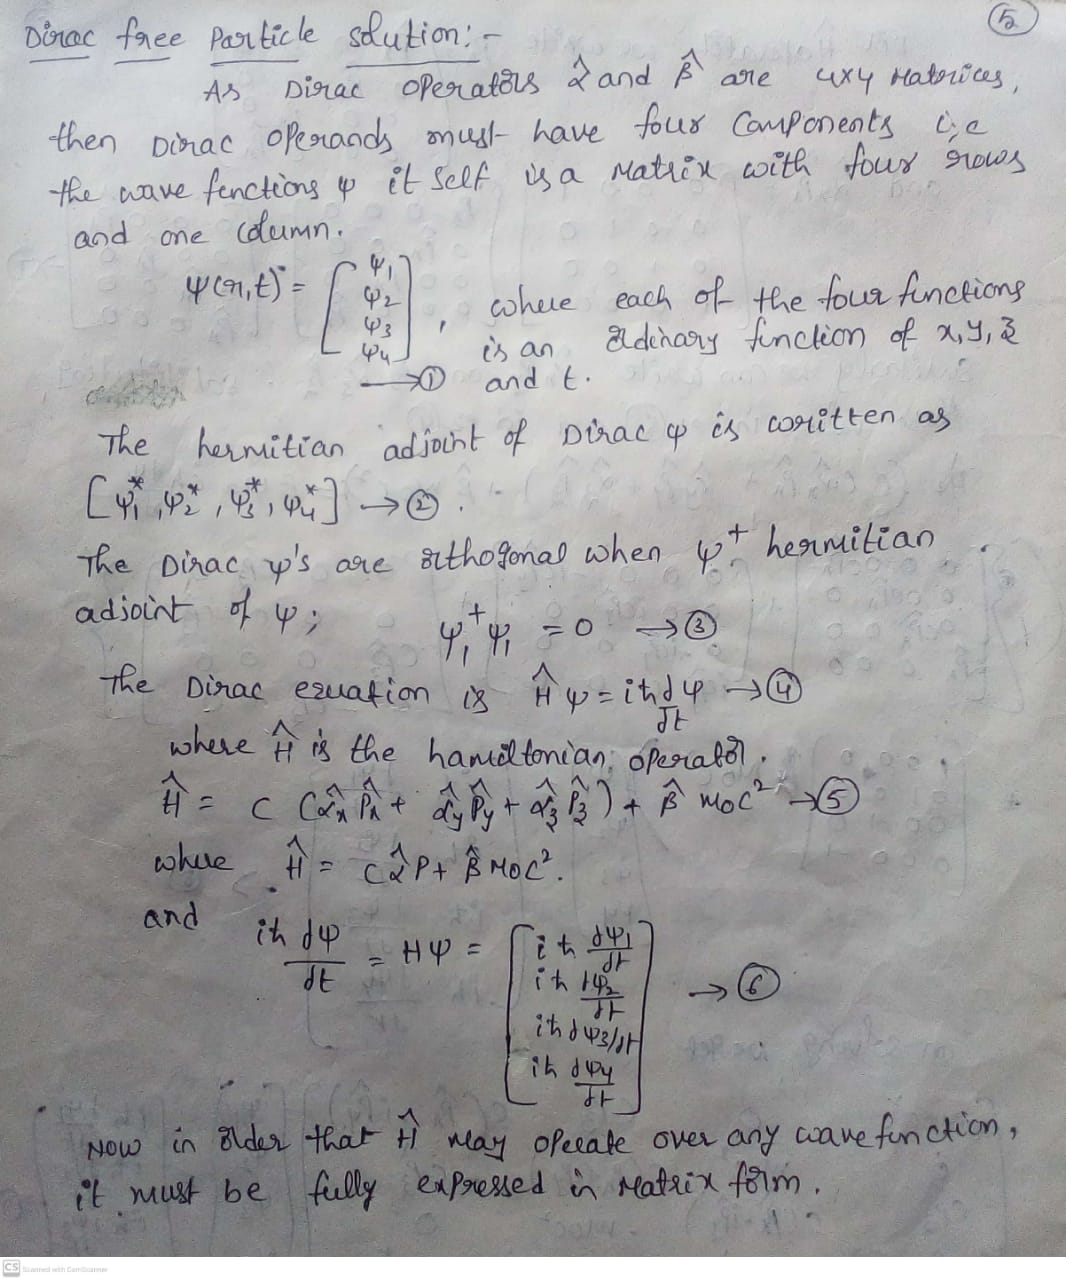 5
Dirac free Particle solution:-
As Dirac operators α̂ and β̂ are 4x4 Matrices,
then Dirac operands must have four Components i,e
the wave fenctions ψ it self is a Matrix with four rows
and one column.
ψ(r,t) = [ψ1 ψ2 ψ3 ψ4] , where each of the four functions
is an ordinary function of x,y,z
→① and t.
The hermitian adjoint of Dirac ψ is written as
[ψ1*, ψ2*, ψ3*, ψ4*] →②.
The Dirac ψ's are orthogonal when ψ+ hermitian
adjoint of ψ; ψ1+ψ1 = 0 →③
The Dirac equation is Ĥψ = iħ dψ/dt →④
where Ĥ is the hamiltonian operator.
Ĥ = c (α̂x P̂x + α̂y P̂y + α̂z P̂z) + β̂ moc² →⑤
where Ĥ = cα̂P + β̂ moc².
and iħ dψ/dt = Hψ = [iħ dψ1/dt
iħ dψ2/dt
iħ dψ3/dt
iħ dψ4/dt] →⑥
Now in order that Ĥ may operate over any wave function,
it must be fully expressed in Matrix form.
CS Scanned with CamScanner